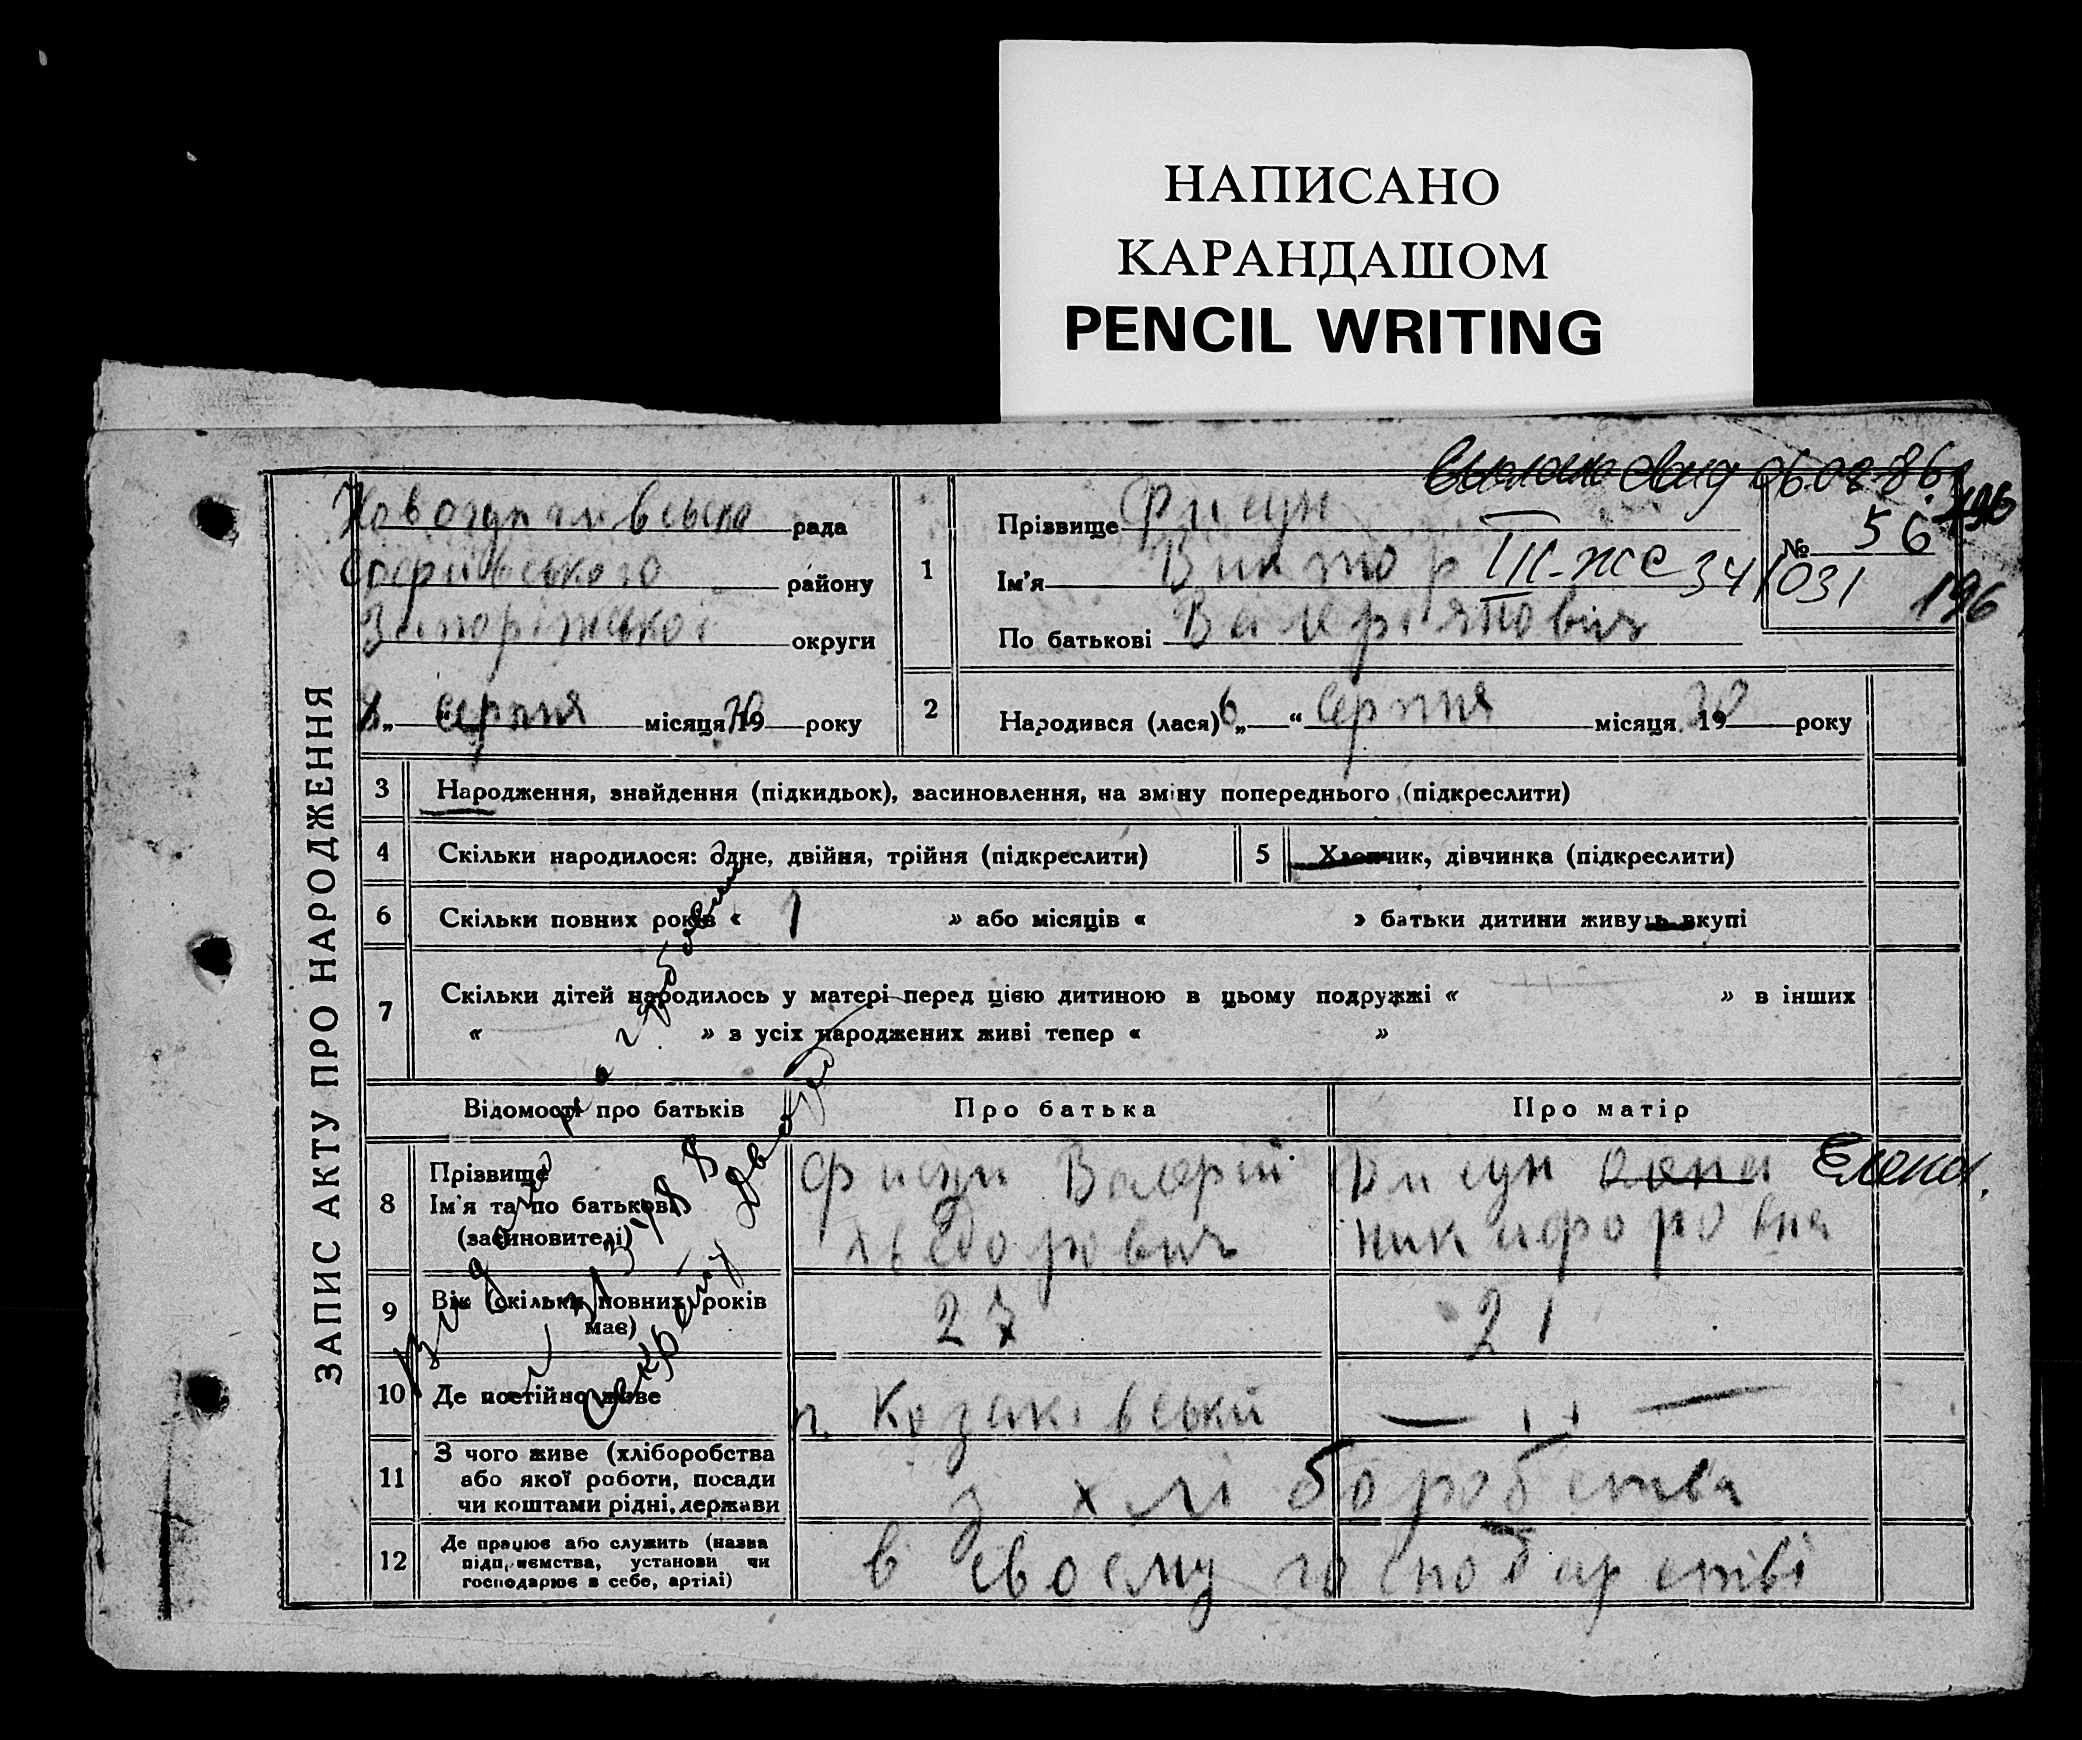 НАПИСАНО
КАРАНДАШОМ
PENCIL WRITING
ЗАПИС АКТУ ПРО НАРОДЖЕННЯ
06.08.86.
196
рада
району
Запоріжської округи
8 „ серпня місяця 1930 року
1
Прізвище Фисун
Ім'я Виктор III-ЖС 341031
По батькові Валеріянович
№ 56
196
2
Народився (лася) „6“ серпня місяця 1930 року
3 Народження, знайдення (підкидьок), засиновлення, на зміну попереднього (підкреслити)
4 Скільки народилося: Одне, двійня, трійня (підкреслити)
5 Хлопчик, дівчинка (підкреслити)
6 Скільки повних років « 1 » або місяців « » батьки дитини живуть вкупі
7 Скільки дітей народилось у матері перед цією дитиною в цьому подружжі « » в інших
« » з усіх народжених живі тепер « »
Відомості про батьків Про батька Про матір
8 Прізвище
Ім'я та по батькові
(засиновителі)
Фисун Валерій
хведорович
Фисун Елена
никифоровна
9 Вік (скільки повних років має)
27 21
10 Де постійно живе
11 З чого живе (хліборобства
або якої роботи, посади
чи коштами рідні, держави
з хліборобства
12 Де працює або служить (назва
підприємства, установи чи
господарює в себе, артілі)
в своему господарстві